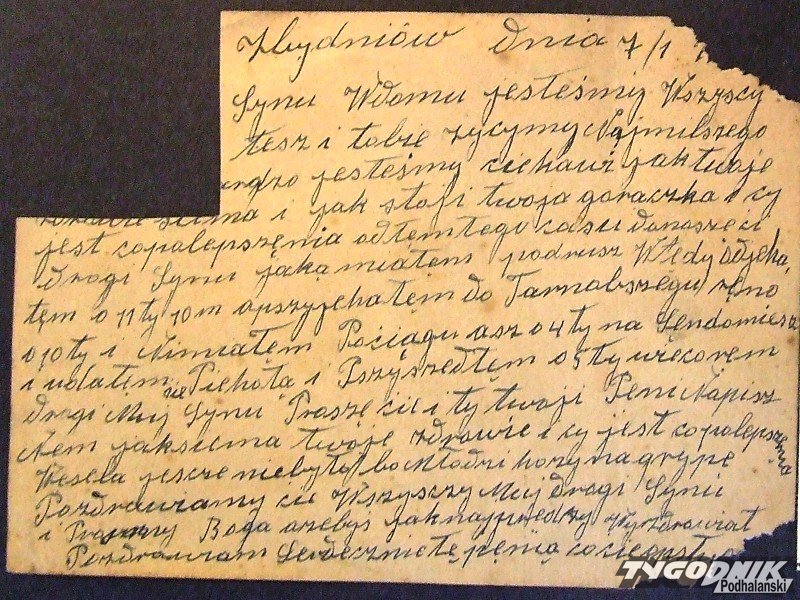 Zbydniów dnia 7/1
Synu Wdomu jesteśmy Wszyscy
tesz i tobie zycymy Najmilszego
ardzo jesteśmy ciekawi jak twoje
zdrowie sie ma i jak stoji twoja goraczka i cy
jest copalepszenia odtemtego casu donosze ci
drogi Synu jaka miałem podrusz Wtedy odjeha
łem o 11ty 10 m apszyjehałem do Tarnobszegu reno
o 10ty i Nimiałem Pociągu asz o 4ty na Sendomiesz
i udałem sie Piehota i Pszyszedłem o 5ty wiecorem
drogi Muj Synu Prosze cie i ty twoji Peni Napisz
Nem jaksiema twoje zdrowie i cy jest copalepszenia
Wesela jescze niebyło bo Młodzi horzy na grype
Pozdrawiamy cie Wszyscy Muj drogi Synu
i Prosiemy Boga azebyś jaknajpredzy wyzdrowiał
Pozdrawiam Serdecznie tę penią co cie
TYGODNIK
Podhalański